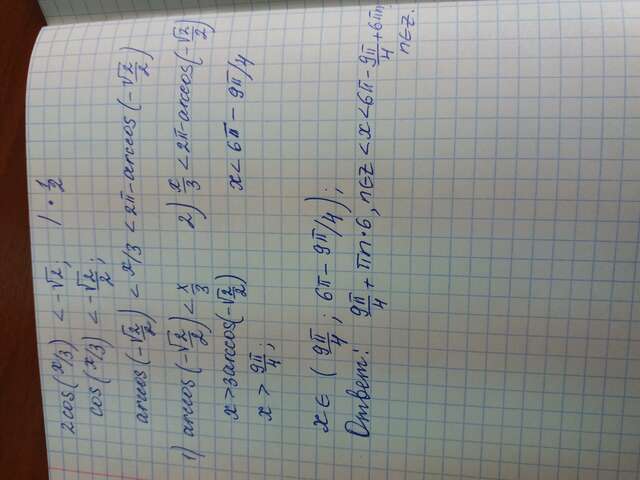 2cos(x/3) < -√2; | · 1/2
cos(x/3) < -√2/2;
arccos(-√2/2) < x/3 < 2π-arccos(-√2/2)
1) arccos(-√2/2) < x/3 2) x/3 < 2π-arccos(-√2/2)
x > 3arccos(-√2/2) x < 6π - 9π/4
x > 9π/4;
x ∈ (9π/4; 6π - 9π/4);
Ответ: 9π/4 + πn·6, n∈z < x < 6π - 9π/4 + 6πn,
n∈z.